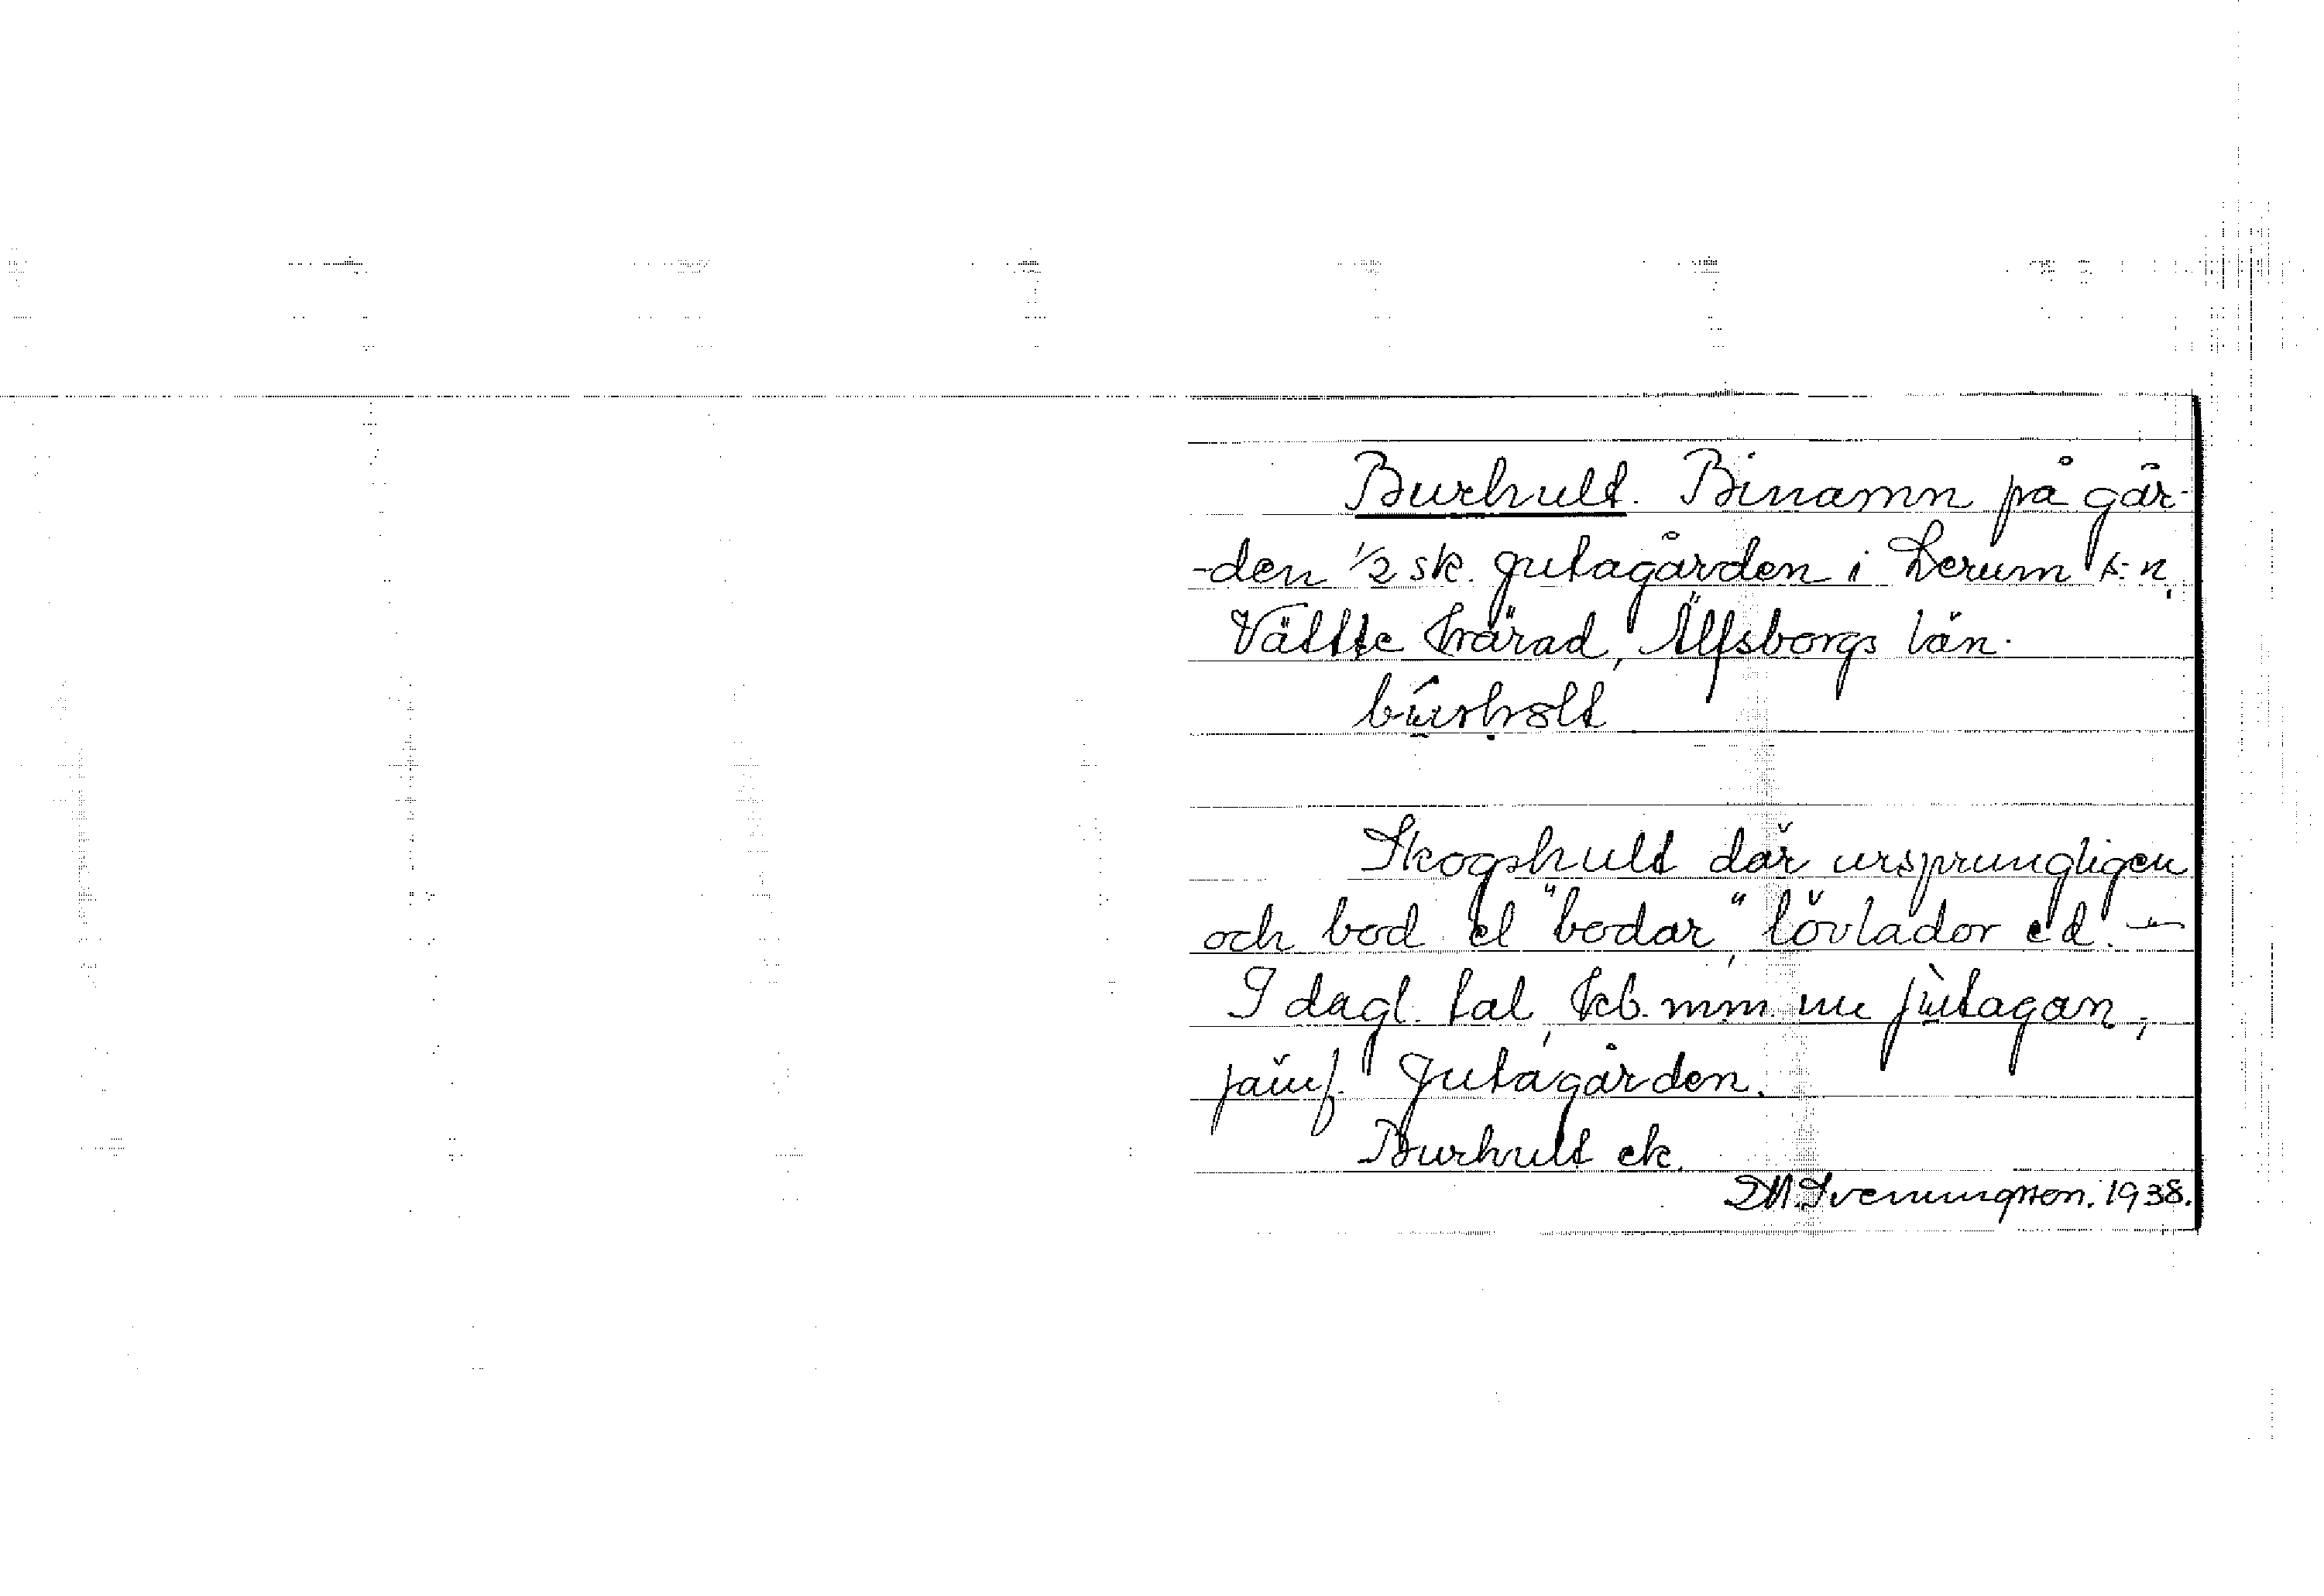 Burhult. Binamn på går-
-den 1/2 sk. Jutagården i Lerum s-n,
Vättle härad, Älfsborgs län.
Skogshult där ursprungligen
och bod el "bodar", lövlador ed. —
I dagl. tal, kb. mm. nu jùtagan,
jämf. Jutagården.
Burhult ek.
D.M. Svenningson. 1938.